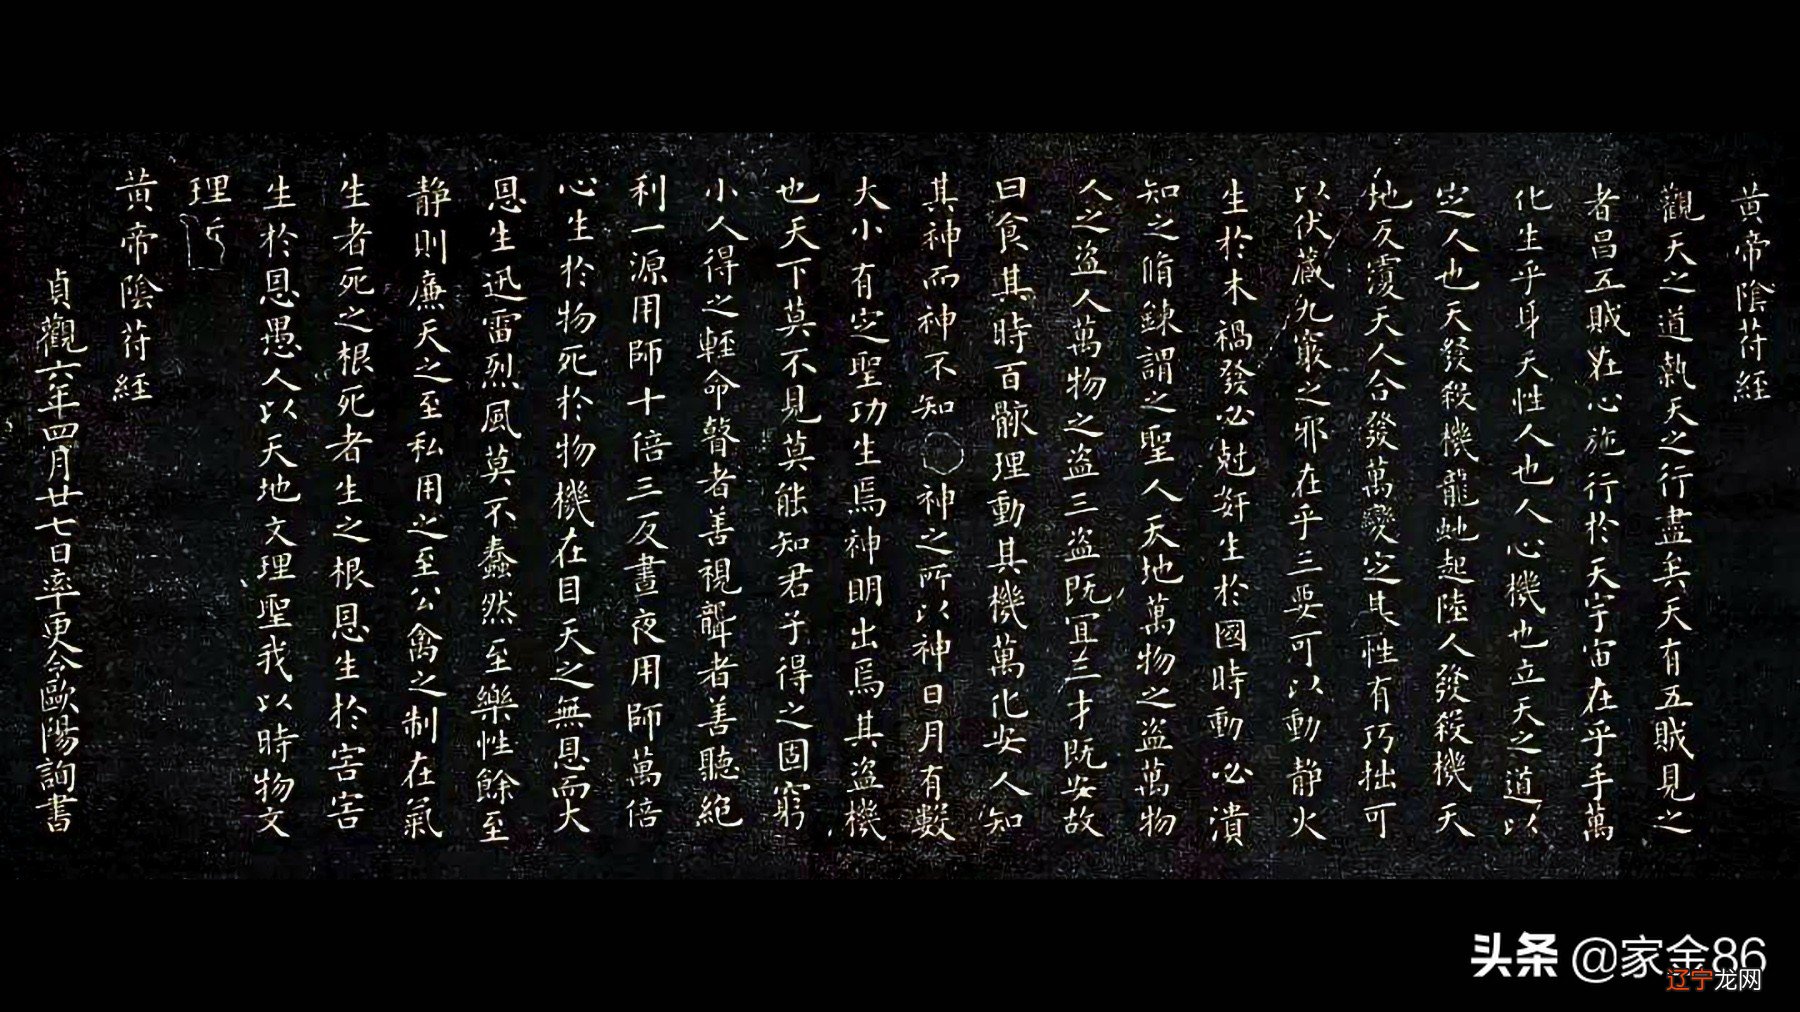 黃帝陰符經
觀天之道執天之行盡矣天有五賊見之
者昌五賊在心施行於天宇宙在乎手萬
化生乎身天性人也人心機也立天之道以
定人也天發殺機龍虵起陸人發殺機天
地反覆天人合發萬變定其性有巧拙可
以伏藏九竅之邪在乎三要可以動靜火
生於木禍發必尅奸生於國時動必潰
知之脩鍊謂之聖人天地萬物之盜萬物
人之盜人萬物之盜三盜既宜三才既安故
曰食其時百骸理動其機萬化安人知
其神而神不知神之所以神日月有數
大小有定聖功生焉神明出焉其盜機
也天下莫不見莫能知君子得之固窮
小人得之輕命瞽者善視聾者善聽絕
利一源用師十倍三反晝夜用師萬倍
心生於物死於物機在目天之無恩而大
恩生迅雷烈風莫不蠢然至樂性餘至
靜則廉天之至私用之至公禽之制在氣
生者死之根死者生之根恩生於害害
生於恩愚人以天地文理聖我以時物文
理
黃帝陰符經
貞觀六年四月廿七日率更令歐陽詢書
头条 @家金86
辽宁龙网